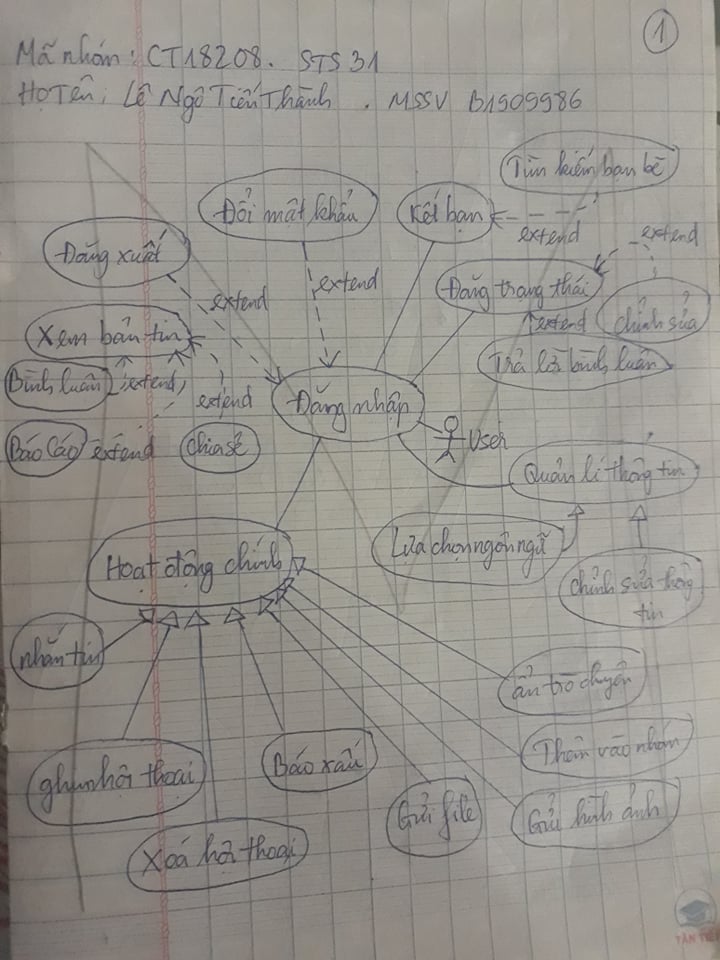 1
Mã nhóm: CT18208. STS 31
Họ Tên: Lê Ngô Tiến Thành. MSSV B1909986
Tìm kiếm bạn bè
Đổi mật khẩu
Kết bạn
extend
extend
Đăng xuất
Đăng trạng thái
extend
extend
Xem bản tin
extend
chỉnh sửa
Trả lời bình luận
Bình luận
extend
extend
Đăng nhập
User
Báo Cáo
extend
chia sẻ
Quản lí thông tin
Lựa chọn ngôn ngữ
Hoạt động chính
chỉnh sửa thông
tin
nhắn tin
ẩn trò chuyện
Thêm vào nhóm
ghim hội thoại
Báo xấu
Gửi file
Gửi hình ảnh
Xoá hội thoại